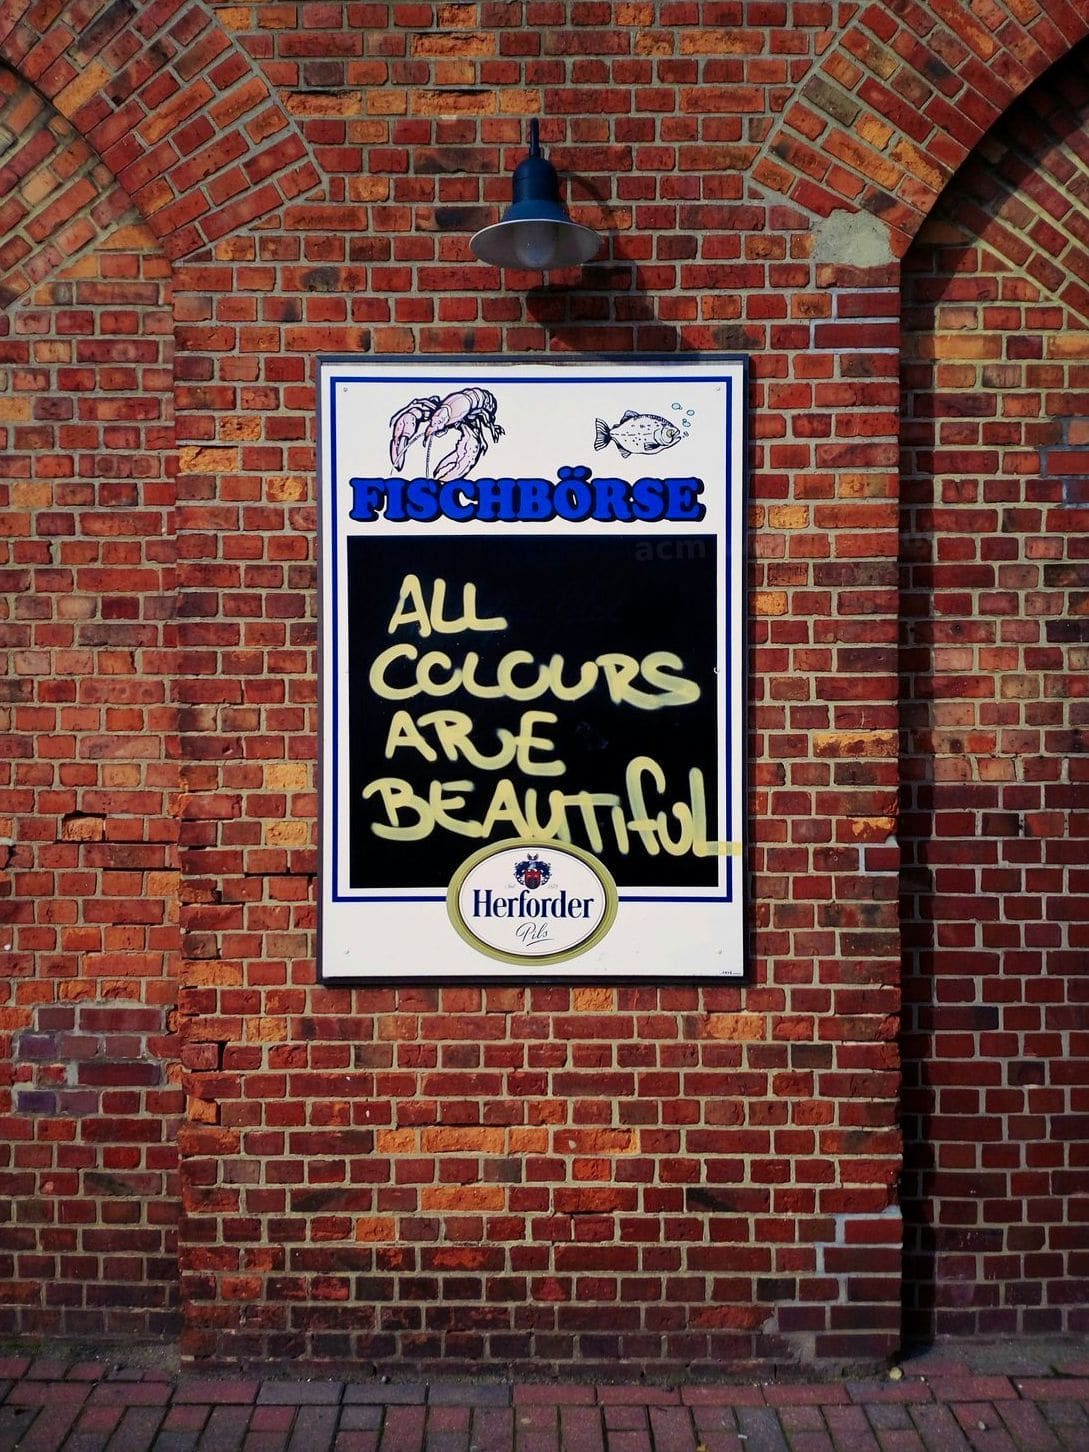 FISCHBÖRSE
acm
ALL
COLOURS
ARE
BEAUTIfUL
Herforder
Pils